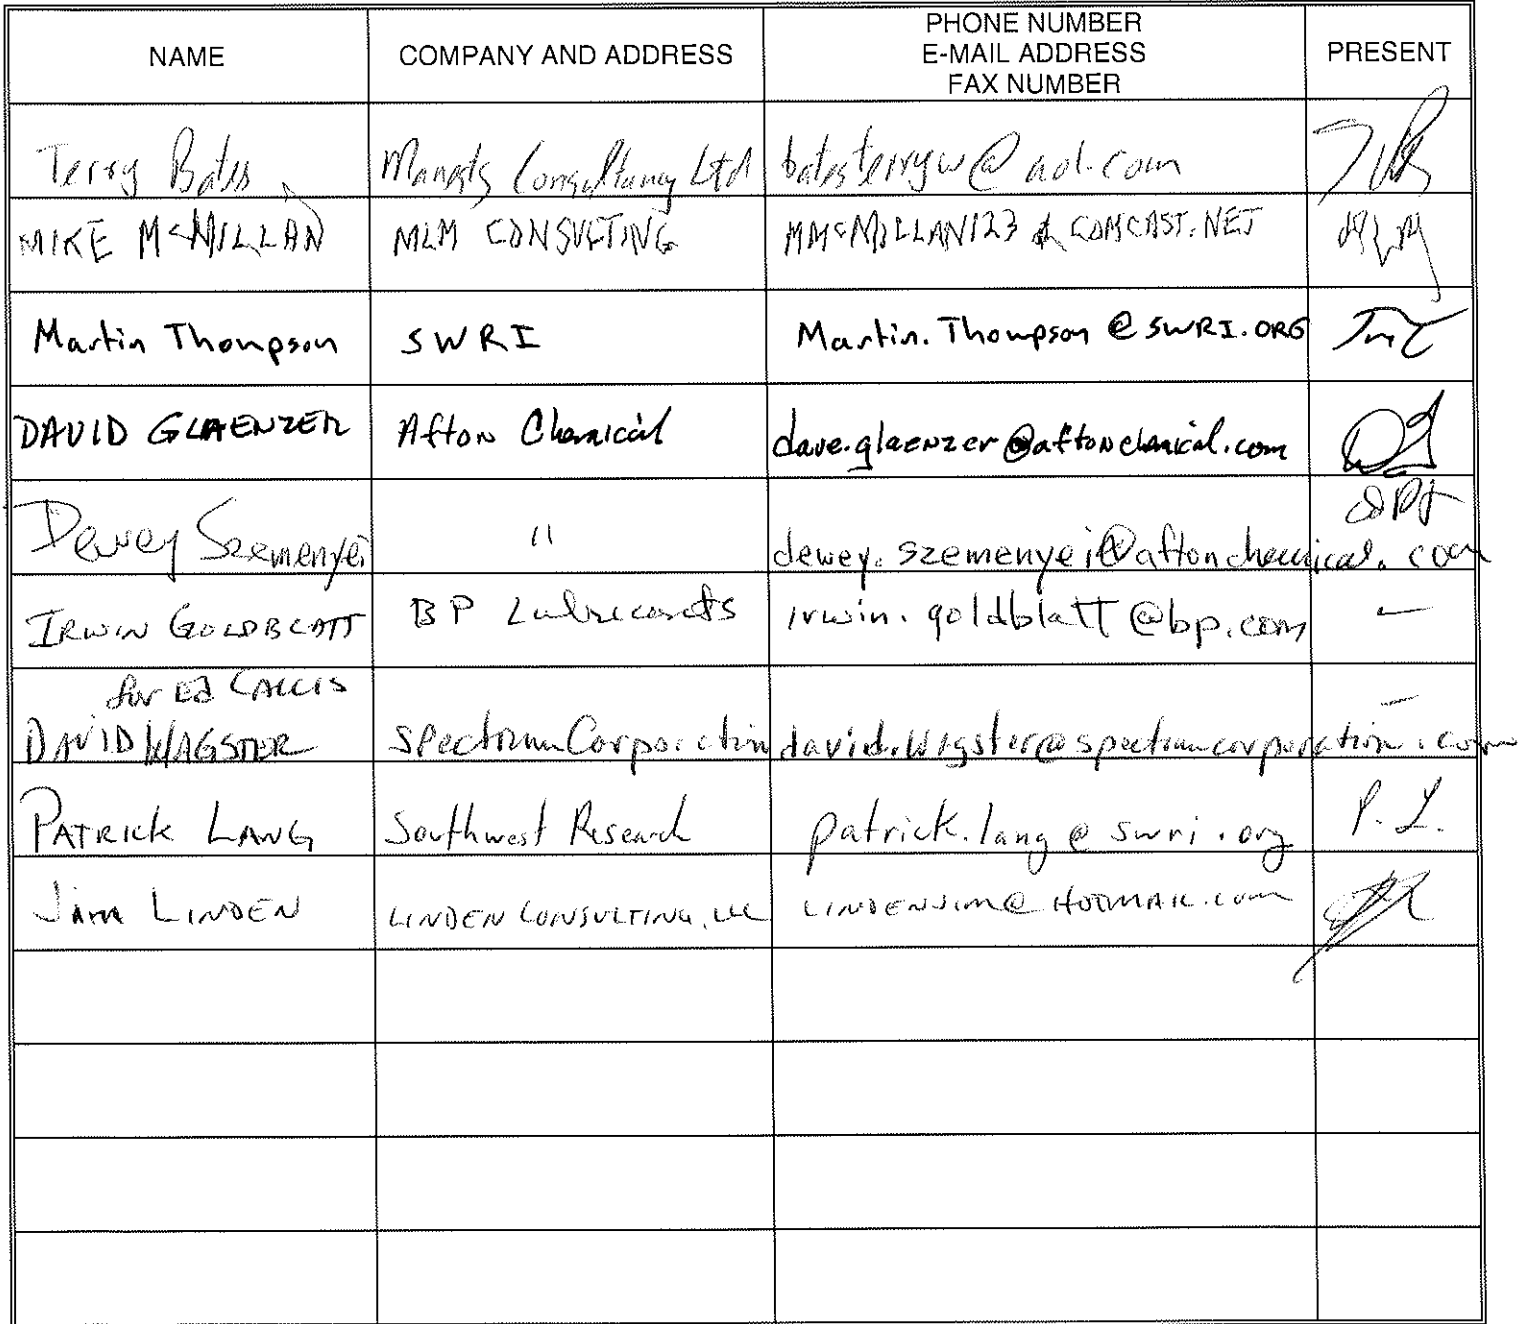 NAME
COMPANY AND ADDRESS
PHONE NUMBER
E-MAIL ADDRESS
FAX NUMBER
PRESENT
Terry Bates
Consultancy Ltd
batesterryw@aol.com
MIKE McMILLAN
MLM CONSULTING
MMCMILLAN123@COMCAST.NET
MLM
Martin Thompson
SWRI
Martin.Thompson@SWRI.ORG
DAVID GLAENZER
Afton Chemical
dave.glaenzer@aftonchemical.com
Dewey Szemenyei
"
dewey.szemenyei@aftonchemical.com
IRWIN GOLDBLATT
BP Lubricants
irwin.goldblatt@bp.com
–
for Ed CALLIS
DAVID WAGSTER
Spectrum Corporation
david.wagster@spectrumcorporation.com
–
PATRICK LANG
Southwest Research
patrick.lang@swri.org
P.L.
Jim LINDEN
LINDEN CONSULTING, LLC
LINDENJIM@HOTMAIL.com